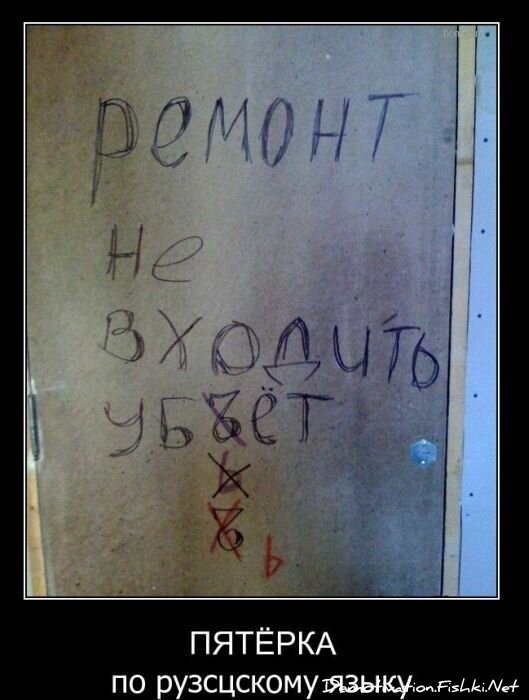 ремонт
не
входить
УБЪёТ
ь
Ъ ь
ПЯТЁРКА
по рузсцскому языку
Demotivation.Fishki.Net